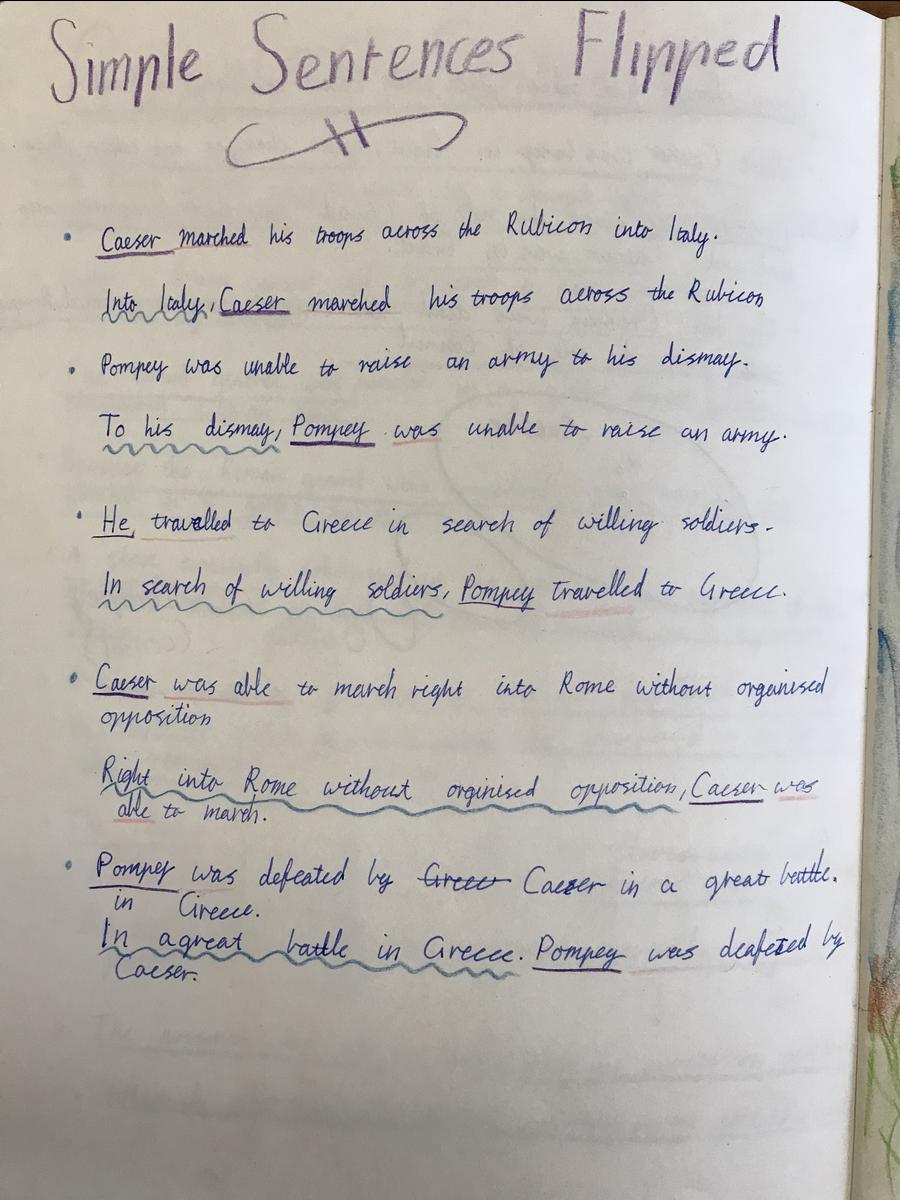 Simple Sentences Flipped
• Caeser marched his troops across the Rubicon into Italy.
Into Italy, Caeser marched his troops across the Rubicon
• Pompey was unable to raise an army to his dismay.
To his dismay, Pompey was unable to raise an army.
• He travelled to Greece in search of willing soldiers.
In search of willing soldiers, Pompey travelled to Greece.
• Caeser was able to march right into Rome without organised
opposition
Right into Rome without orginised opposition, Caeser was
able to march.
• Pompey was defeated by Greece Caeser in a great battle.
in Greece.
In a great battle in Greece. Pompey was deafeted by
Caeser.